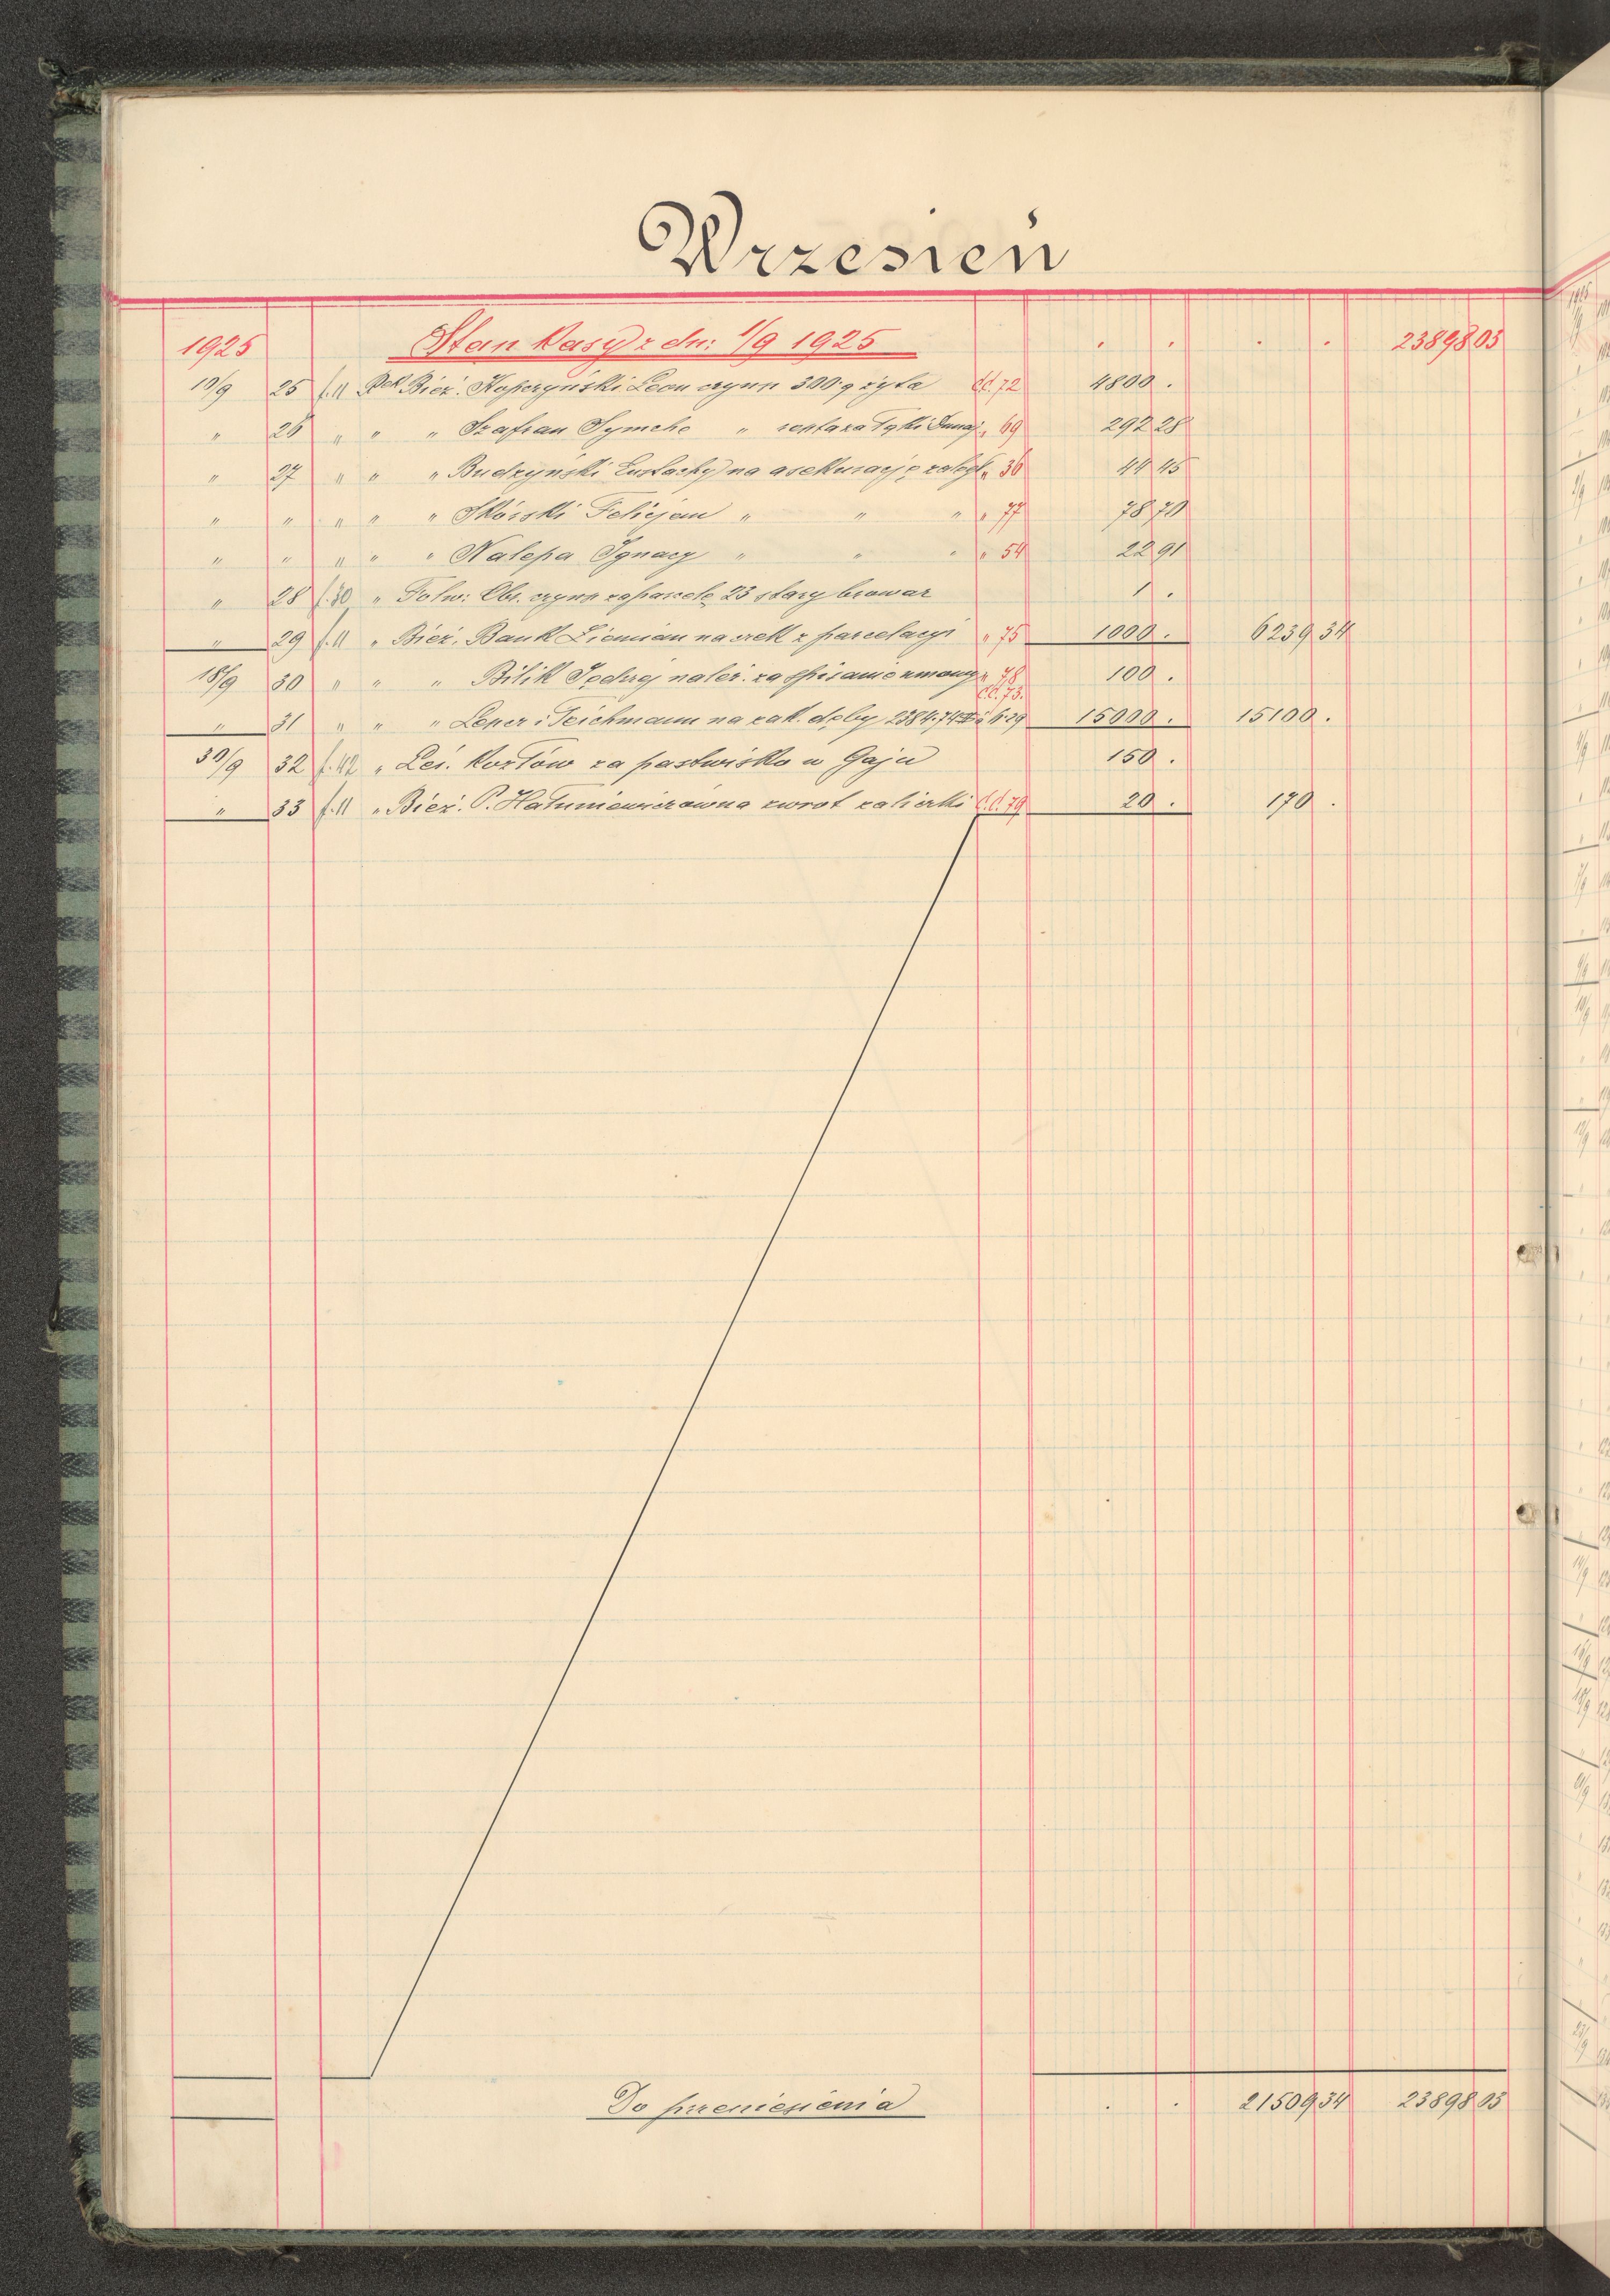 Wrzesień
1925 Stan Kasy z dn: 1/9 1925 . . . . 23898 03
10/9 25 f. 11 Rek Bież. Kopczyński Leon czynn 300 q żyta C.C. 72 4800 .
" 26 " " " Szafran Symche " " 69 292 28
" 27 " " " Budzyński Eustachy na asekurację " 36 44 45
" " " " " Skórski Felicjan " " " " 77 78 70
" " " " " Nalepa Ignacy " " " " 54 22 91
" 28 f. 30 " Folw: Obr. czynn za parcelę 23 stary browar 1 .
" 29 f. 11 " Bież. Bank Ziemian na rek z parcelacyi " 75 1000 . 6239 34
18/9 30 " " " Bilik Jędrzej należ. za spisanie umowy " 78 100 .
C.C. 73.
" 31 " " " Lener i Teichmann na zak. dęby 15000 . 15100 .
30/9 32 f. 42 " Leś. Kozłów za pastwisko w Gaju 150 .
" 33 f. 11 " Bież. P. Hatuniewiczówna zwrot zaliczki C.C. 79 20 . 170 .
Do przeniesienia . . 21509 34 23898 03